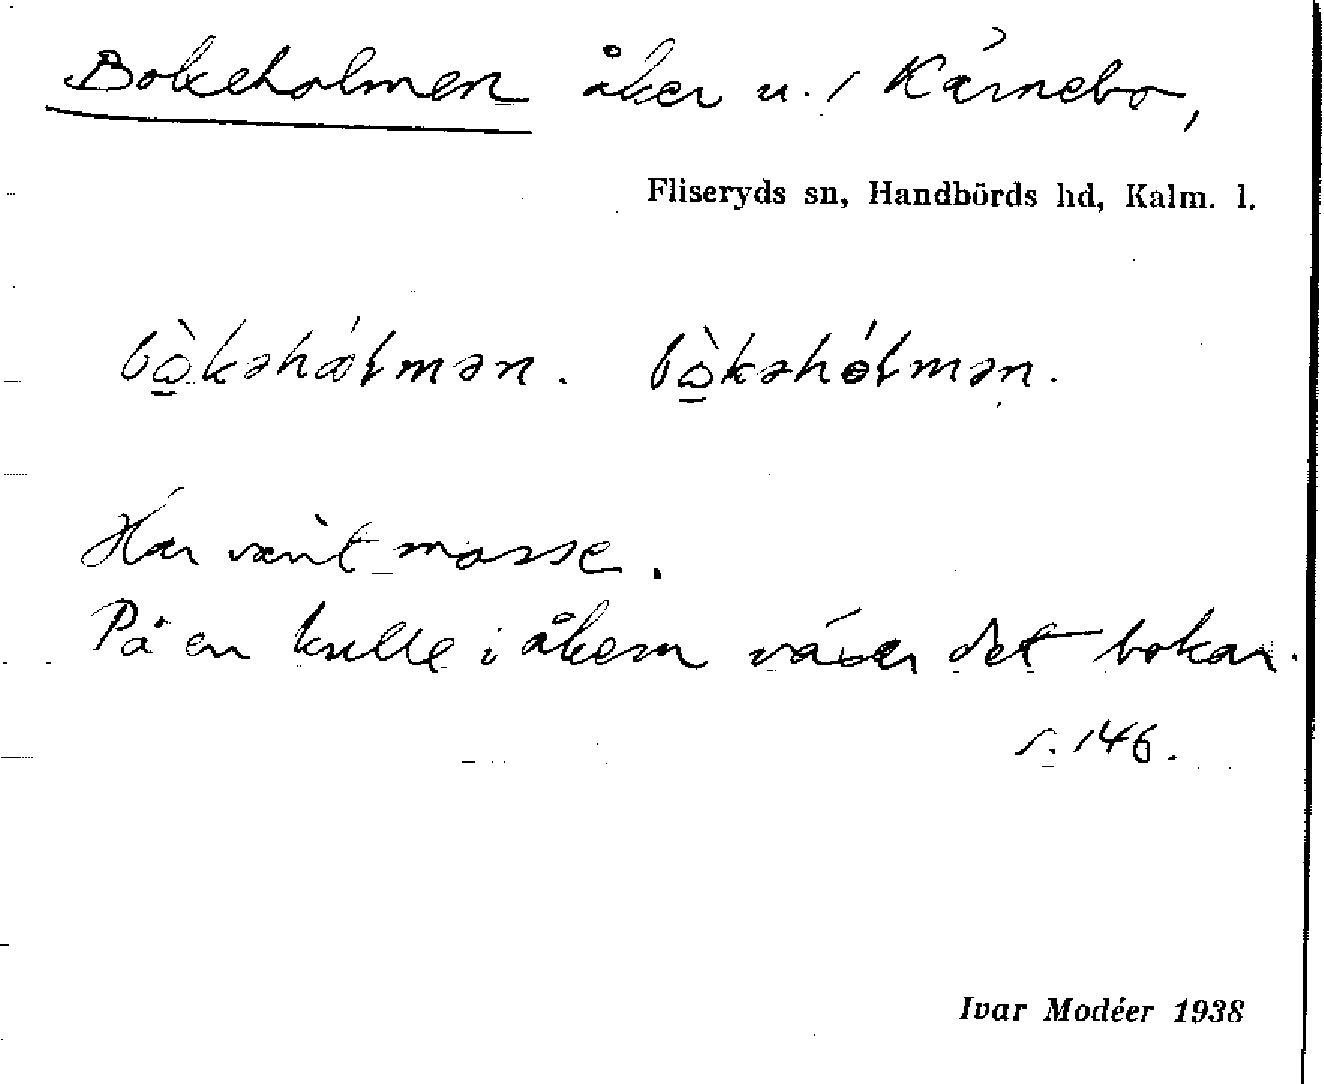 Bokeholmen åker u. / Kärnebo,
Fliseryds sn, Handbörds hd, Kalm. l.
bo̱̊̀kəhólmən. bo̱̊̀kəhólmən.
Har varit mosse.
På en kulle i åkern växer det bokar.
s. 146.
Ivar Modéer 1938